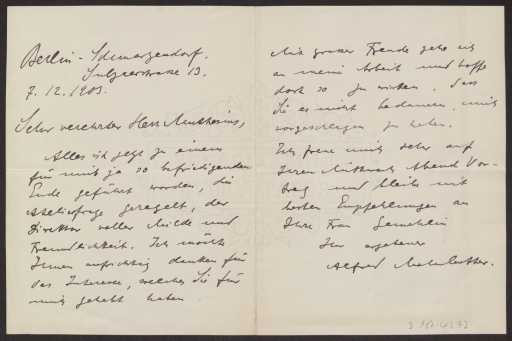 Berlin-Schmargendorf.
Sulzaerstrasse 13.
7.12.1903.
Sehr verehrter Herr Muthesius,
Alles ist jetzt zu einem
für mich ja so befriedigenden
Ende geführt worden, die
Atelierfrage geregelt, der
Direktor voller Milde und
Freundlichkeit. Ich möchte
Ihnen aufrichtig danken für
das Interesse, welches Sie für
mich gehabt haben
Mit grosser Freude gehe ich
an meine Arbeit und hoffe
dort so zu wirken, dass
Sie es nicht bedauern, mich
vorgeschlagen zu haben.
Ich freue mich sehr auf
Ihren Mittwoch Abend Vor-
trag und bleibe mit
besten Empfehlungen an
Ihre Frau Gemahlin
Ihr ergebener
Alfred Mohrbutter.